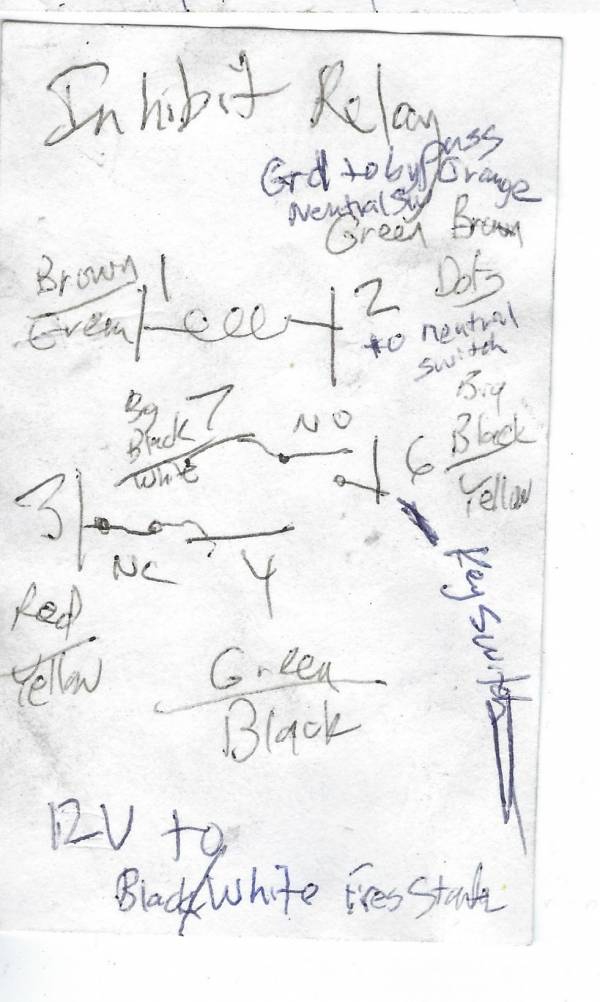 Inhibit Relay
Grd to bypass
Neutral Sw Orange
Green Brown
Brown 1 2 Dots
Green to neutral
switch
Big 7 NO Big
Black 6 Black
White Yellow
3
NC 4 Key Switch
Red
Yellow Green
Black
12V to
Black/White Fres Starter